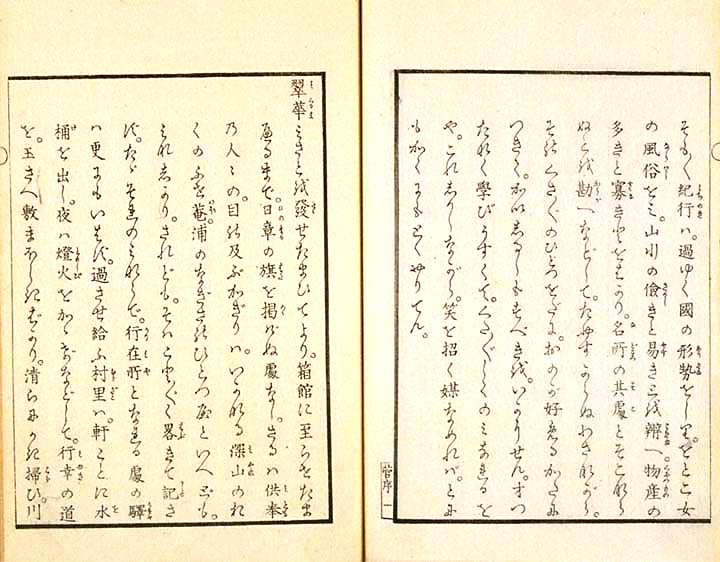 そも〳〵紀行ハ。過ゆく國の形勢をしり。をとこ女
の風俗をミ。山川の儉きと易きとを辨へ。物産の
多きと寡きとをはかり。名所の其處とそこなら
ぬとを勘へなどして。たやすからぬわざながら。
それくさ〴〵のひとつをだに。おのが好めるかたに
つきて。かいしるしもすべきを。いかにせん。才つ
たなく學びうすくて。
や。これしるしながら。笑を招く媒なめれバ。とに
もかくにもとくやりてん。
菅序 一
翠華ミさとを發せたまひてより。箱館に至らせたま
へるまで。日章の旗を掲げぬ處なし。さるハ供奉
の人々の。目の及ぶかぎりハ。いかなる深山のお
くのふせ菴。浦のなぎさのひとつ屋といへども。
されども。そハこと〴〵く畧きて記さ
ず。行在所となれる處の驛
ハ更にもいはず。過させ給ふ村里ハ。軒ことに水
桶を出し。夜ハ燈火をかゝげなどして。行幸の道
を。玉さへ敷まほしきばかり。清らにかき掃ひ。川